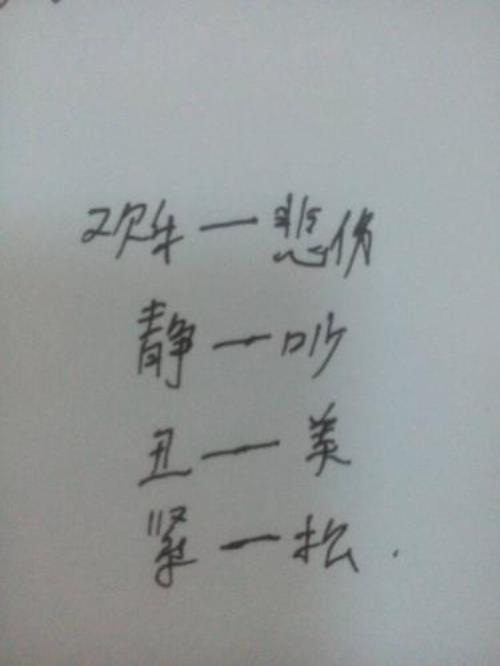 欢乐一悲伤
静一吵
丑一美
紧一松.